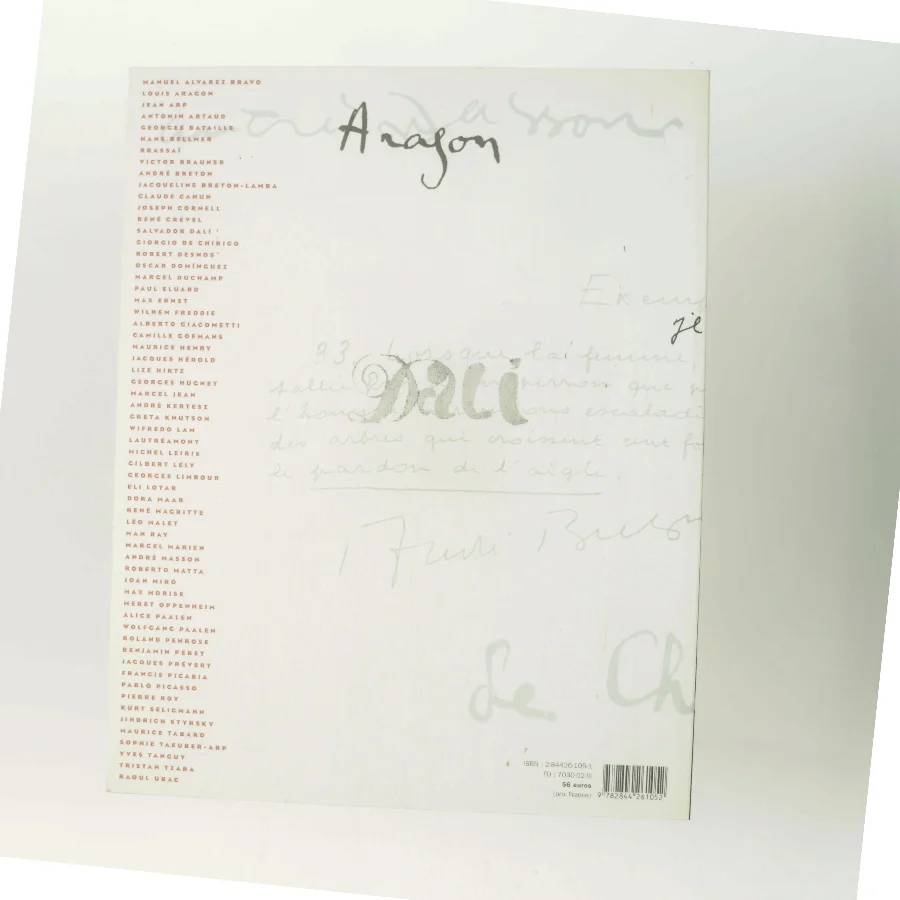 MANUEL ALVAREZ BRAVO
LOUIS ARAGON
JEAN ARP
ANTONIN ARTAUD
GEORGES BATAILLE
HANS BELLMER
BRASSAÏ
VICTOR BRAUNER
ANDRÉ BRETON
JACQUELINE BRETON-LAMBA
CLAUDE CAHUN
JOSEPH CORNELL
RENÉ CREVEL
SALVADOR DALÍ
GIORGIO DE CHIRICO
ROBERT DESNOS
OSCAR DOMÍNGUEZ
MARCEL DUCHAMP
PAUL ELUARD
MAX ERNST
WILHEM FREDDIE
ALBERTO GIACOMETTI
CAMILLE GOEMANS
MAURICE HENRY
JACQUES HÉROLD
LIZE HIRTZ
GEORGES HUGNET
MARCEL JEAN
ANDRÉ KERTESZ
GRETA KNUTSON
WIFREDO LAM
LAUTRÉAMONT
MICHEL LEIRIS
GILBERT LÉLY
GEORGES LIMBOUR
ELI LOTAR
DORA MAAR
RENÉ MAGRITTE
LÉO MALET
MAN RAY
MARCEL MARIEN
ANDRÉ MASSON
ROBERTO MATTA
JOAN MIRÓ
MAX MORISE
MERET OPPENHEIM
ALICE PAALEN
WOLFGANG PAALEN
ROLAND PENROSE
BENJAMIN PÉRET
JACQUES PRÉVERT
FRANCIS PICABIA
PABLO PICASSO
PIERRE ROY
KURT SELIGMANN
JINDRICH STYRSKY
MAURICE TABARD
SOPHIE TAEUBER-ARP
YVES TANGUY
TRISTAN TZARA
RAOUL UBAC
Aragon
je
33. Lorsque la femme
Dalí
des arbres qui croissent cent fo
le pardon de l'aigle.
André Breton
de Ch
ISBN : 2.84426-105-1
56 euros
(prix France)
9 782844 261052